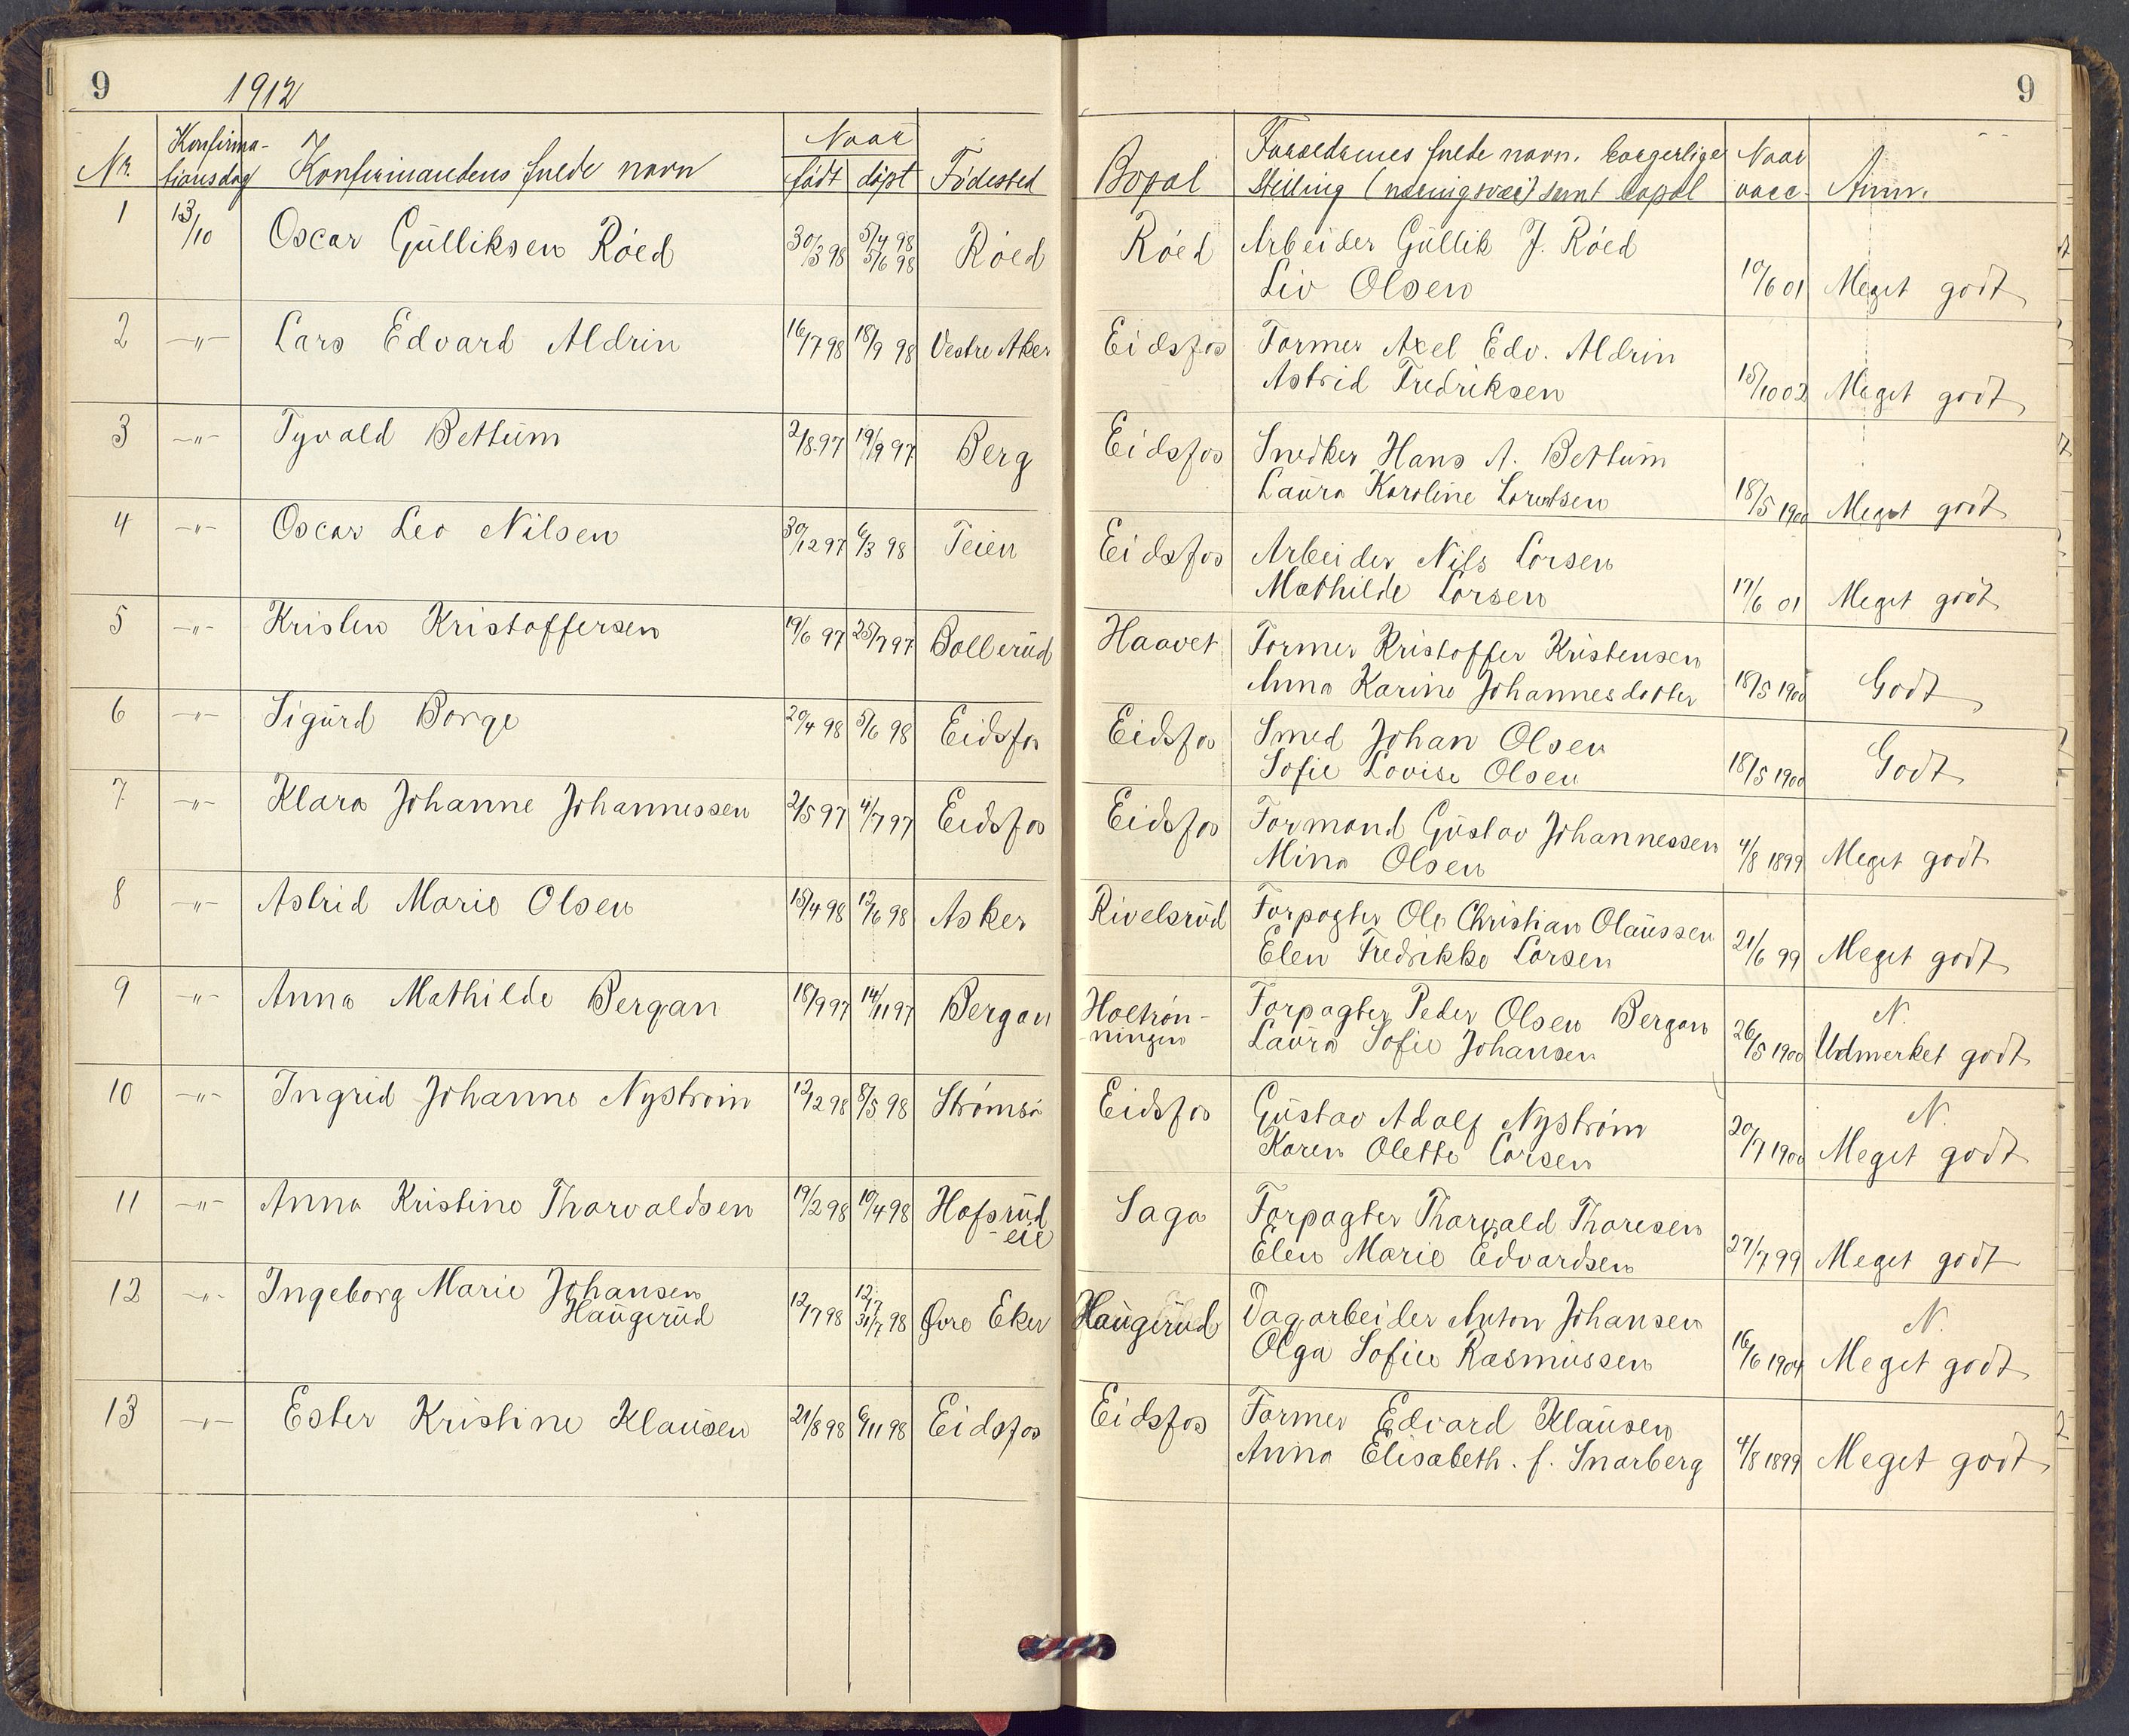 9 1912 9
Nr. Konfirma- Konfirmandens fulde navn Naar Fødested Bopæl Forældrenes fulde navn, borgerlige Naar Anm.
tionsdag født døpt Stilling (næringsvei) samt bopæl vacc.
1 13/10 Oscar Gülliksen Röed 30/3 98 5/4 98 Röed Röed Arbeider Güllik J. Röed
5/6 98 Liv Olsen 10/6 01 Meget godt
2 -"- Lars Edvard Aldrin 16/7 98 18/9 98 Vestre Aker Eidsfos Former Axel Edv. Aldrin
Astrid Fredriksen 15/10 02 Meget godt
3 -"- Tyvald Bettüm 2/8 97 19/9 97 Berg Eidsfos Snedker Hans A. Bettüm
Laüra Karoline Lorentsen 18/5 1900 Meget godt
4 -"- Oscar Leo Nilsen 30/12 97 6/3 98 Teien Eidsfos Arbeider Nils Larsen
Mathilde Larsen 17/6 01 Meget godt
5 -"- Kristen Kristoffersen 19/6 97 25/7 97 Bollerüd Haavet Former Kristoffer Kristensen
Anna Karine Johannesdatter 18/5 1900 Godt
6 -"- Sigürd Borge 20/4 98 5/6 98 Eidsfos Eidsfos Smed Johan Olsen
Sofie Lovise Olsen 18/5 1900 Godt
7 -"- Klara Johanne Johannessen 2/5 97 4/7 97 Eidsfos Eidsfos Formand Güstav Johannessen
Mina Olsen 4/8 1899 Meget godt
8 -"- Astrid Marie Olsen 15/4 98 12/6 98 Asker Rivelsrüd Forpagter Ole Christian Olaüssen
Elen Fredrikke Larsen 21/6 99 Meget godt
9 -"- Anna Mathilde Bergan 18/9 97 14/11 97 Bergan Holtrön- Forpagter Peder Olsen Bergan N.
ningen Laüra Sofie Johansen 26/5 1900 Udmerket godt
10 -"- Ingrid Johanne Nyström 12/2 98 8/5 98 Strømsö Eidsfos Güstav Adolf Nyström N.
Karen Olette Larsen 20/7 1900 Meget godt
11 -"- Anna Kristine Thorvaldsen 19/2 98 10/4 98 Hofsrüd Saga Forpagter Thorvald Thoresen
-eie Elen Marie Edvardsen 27/7 99 Meget godt
12 -"- Ingeborg Marie Johansen 12/7 98 12/7 Øvre Eker Haügerüd Dagarbeider Anton Johansen N.
Haügerüd 31/7 98 Olga Sofie Rasmüssen 16/6 1904 Meget godt
13 -"- Ester Kristine Klaüsen 21/8 98 6/11 98 Eidsfos Eidsfos Former Edvard Klaüsen
Anna Elisabeth. f. Snarberg 4/8 1899 Meget godt